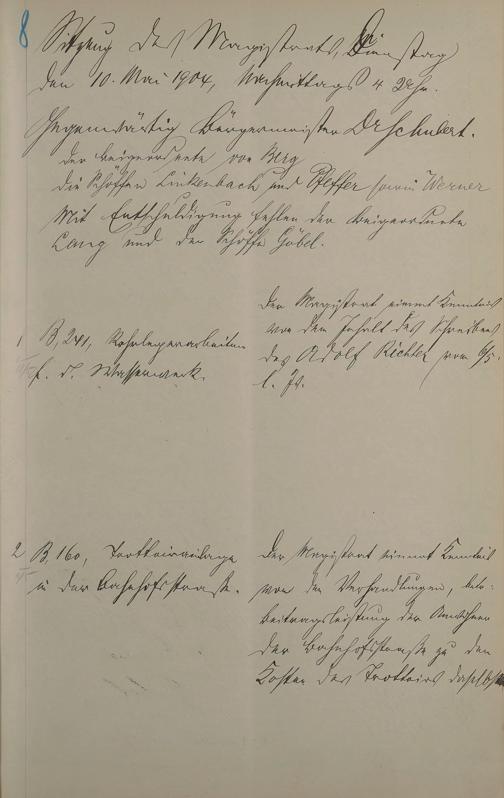 8
Sitzung des Magistrats, Dienstag
den 10. Mai 1904, Nachmittags 4 Uhr.
Gegenwärtig Bürgermeister Dr Schubert.
der Beigeordnete von Berg
die Schöffen Linkenbach und Pfeffer sowie Werner
Mit Entschuldigung fehlen der Beigeordnete
Lang und der Schöffe Göbel.
1 B, 241, Rohrlegerarbeiten
f. d. Wasserwerk.
Der Magistrat nimmt Kenntnis
von dem Inhalt des Schreibens
des Adolf Richter vom 6/5.
l. Js.
2 B, 160, Trottoiranlage
in der Bahnhofstraße.
Der Magistrat nimmt Kenntnis
von den Verhandlungen, betr.
Beitragsleistung der Anwohner
der Bahnhofstraße zu den
Kosten des Trottoirs daselbst